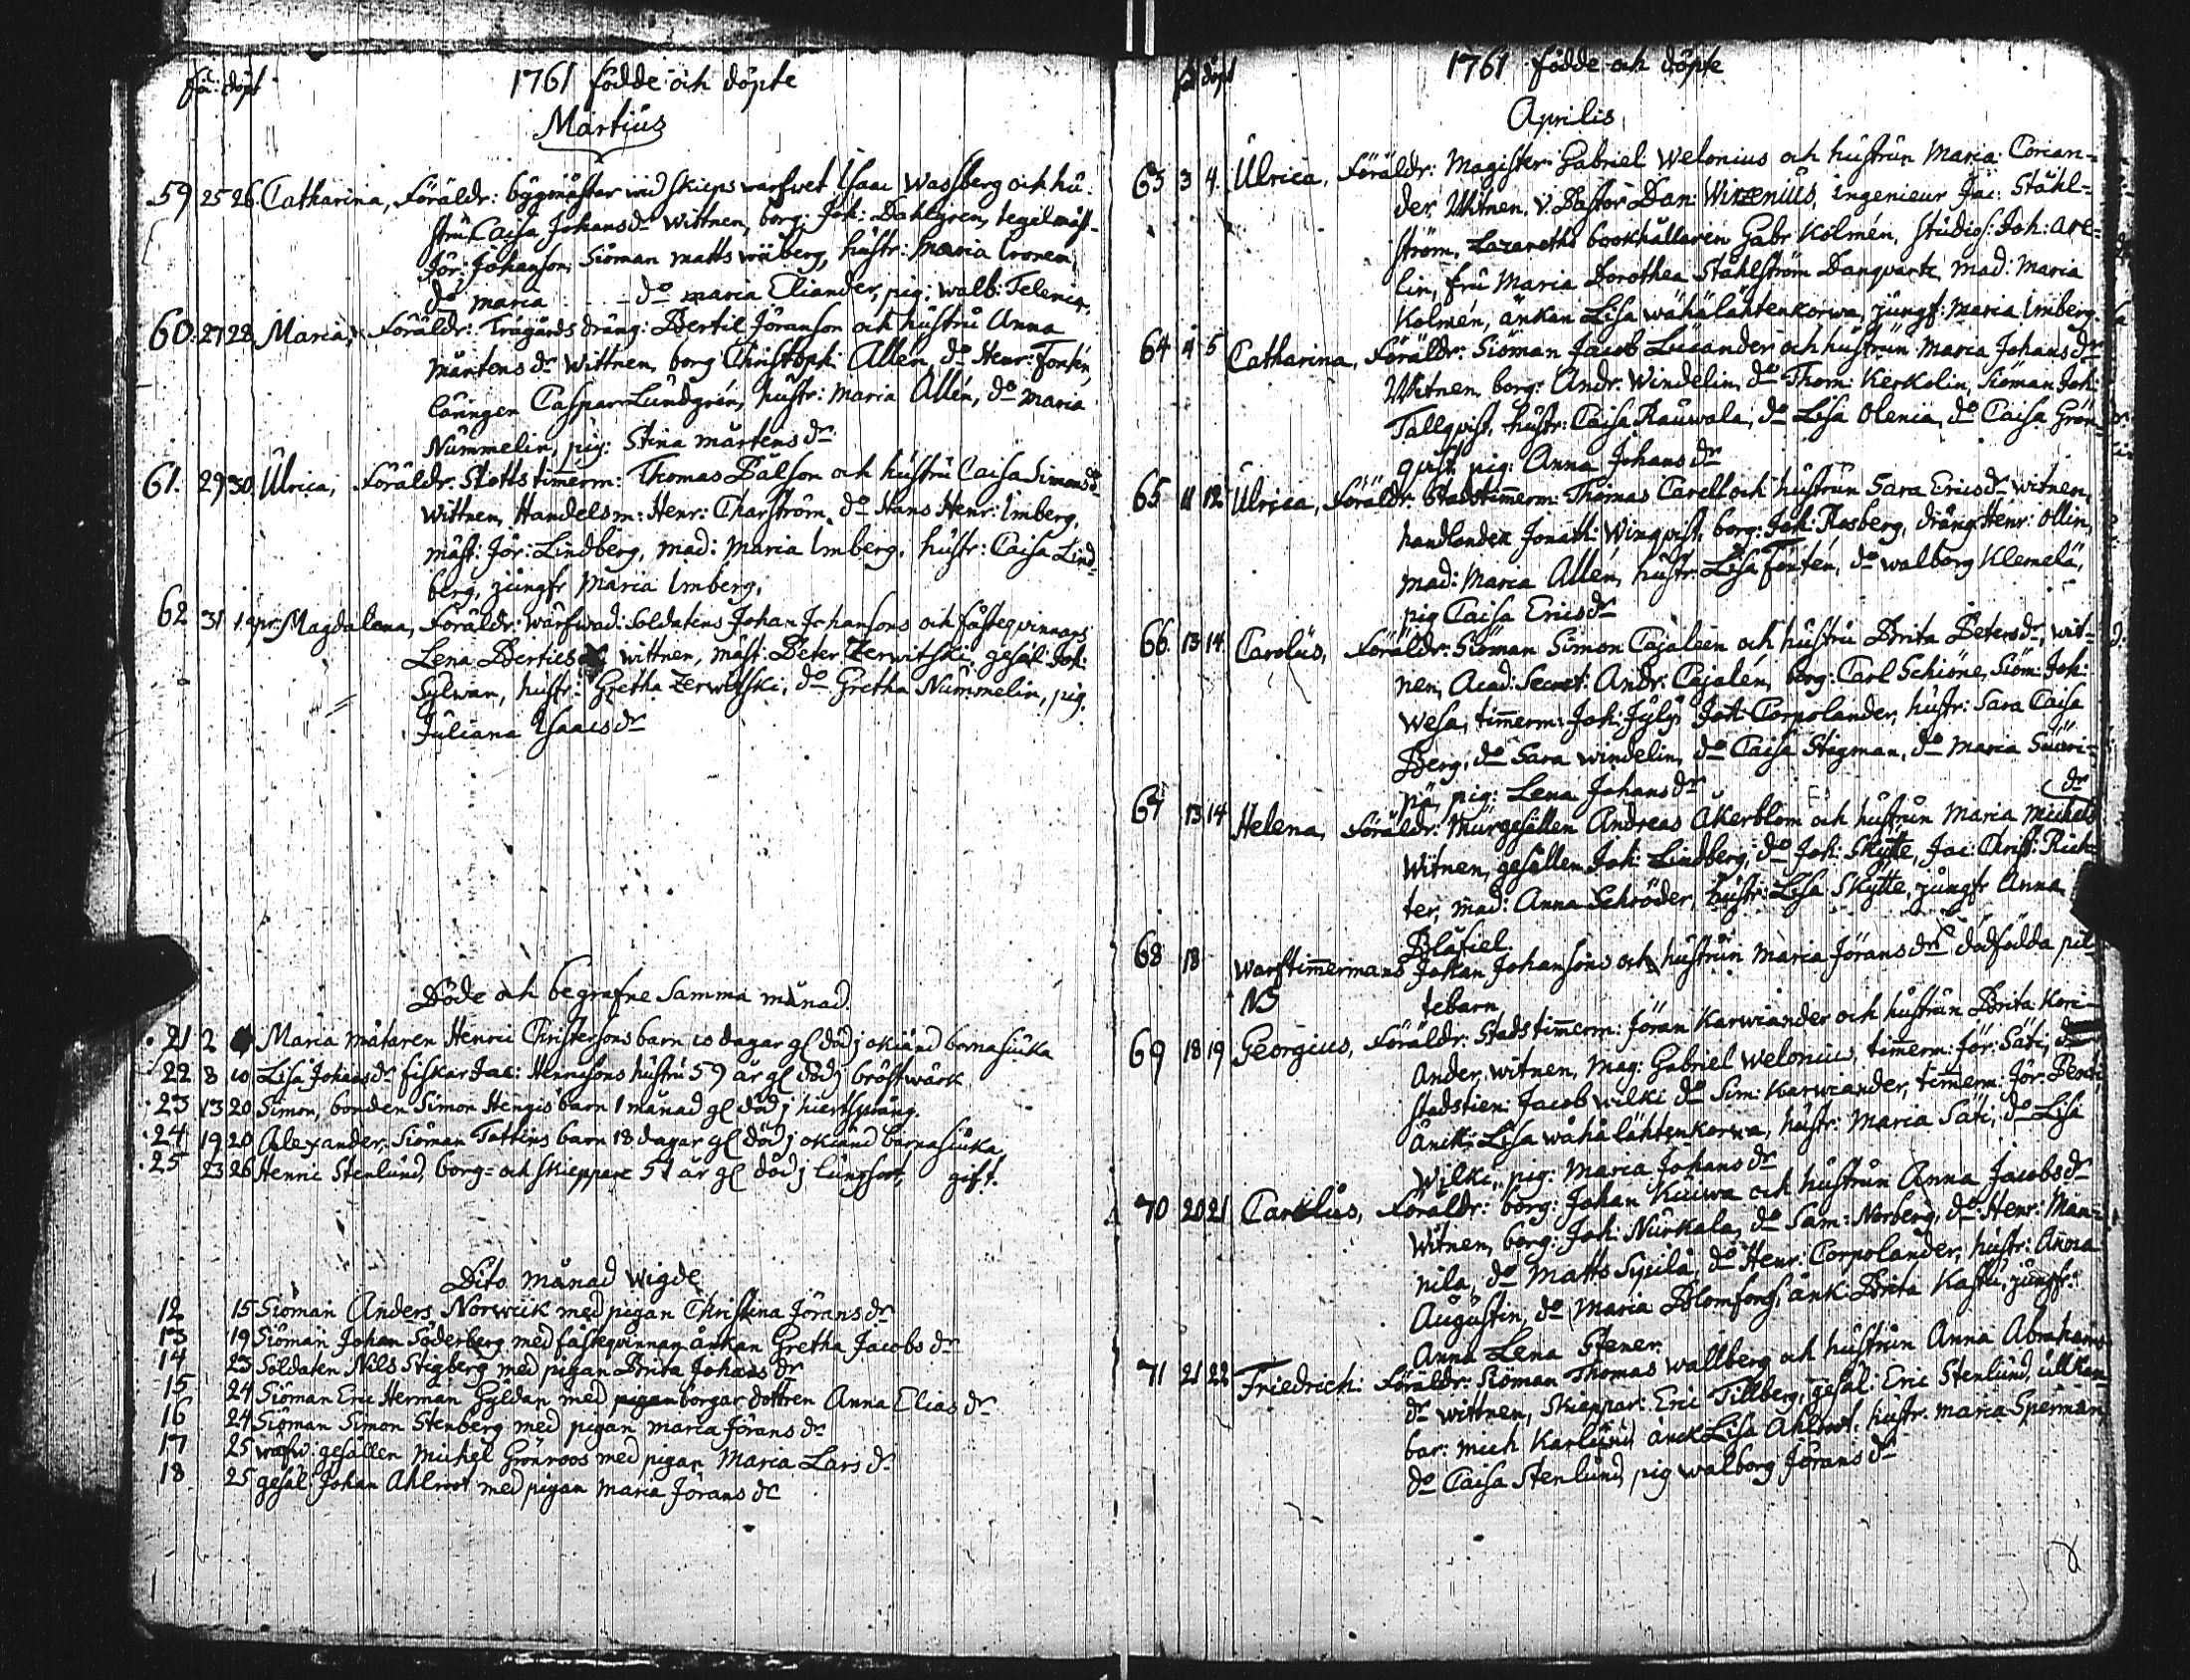 fö: döpt 1761 födde och döpte
Martius
59 25 26 Catharina, Föräldr: bygmästar wid skieps warfwet Isaac Wassberg och hu-
stru Caisa Johansdr wittnen, borg: Joh: Dahlgren, tegelmäst-
Jör: Johanson, Siöman matts wiiberg, hustr: maria Cronen,
do maria do maria Eliander, pig: walb:
60 27 28 Maria, Föräldr: Trägårds dräng: Bertil Jöranson och hustru Anna
mårtens dr wittnen, borg Christoph: Allén, do Henr: Fontén,
Caspar Lundgrén, hustr: Maria Allén, do maria
Nummelin, pig: Stina mårtens dr
61. 29 30 Ulrica, Föräldr. Slotts timerm: Thomas Pålson och hustru Caisa Simonsdr
wittnen, Handelsm: Henr: Tharström, do Hans Henr: Imberg,
mäst: Jör: Lindberg, mad: Maria Imberg, hustr: Caisa Lind-
berg, jungfr Maria Imberg.
62 31 1 apr: Magdalena, Föräldr: warfwad: Soldatens Johan Johansons och fästeqvinnans
Lena Berties wittnen, mäst: Peter Zerwitski, gesäl Joh:
Sylwan, hustr: Gretha Zerwitski, do Gretha Nummelin, pig.
Juliana Isaacs dr
Döde och begrafne Samma månad.
21 2 Maria mätaren Henric Christersons barn 10 dagar gl död j okiänd barnasiuka
22 8 10 Lisa Johansdr fiskar Jac: Henricsons hustru 59 år gl död j bröstwärk
23 13 20 Simon, bonden Simon Hengis barn 1 månad gl död j hiertsprång.
24 19 20 Alexander, Siöman Tattins barn 18 dagar gl död j okiänd barnasiuka,
25 23 26 Henric Stenlund, borg- och skieppare 51 år gl död j lungsoot, gift.
Dito månad wigde
12 15 Siöman Anders Norwiik med pigan Christina Jörans dr
13 19 Siöman Johan Söderberg med fästeqvinnan änkan Gretha Jacobs dr
14 23 Soldaten Nils Stigberg med pigan Brita Johans dr
15 24 Siöman Eric Herman Gyldan med pigan borgar dottren Anna Elias dr
16 24 Siöman Simon Stenberg med pigan maria Jörans dr
17 25 warfw: gesällen Michel Grönroos med pigan Maria Lars dr
18 25 gesäl: Johan Ahlroot med pigan maria Jörans dr
fö döpt 1761 födde och döpte
Aprilis
63 3 4 Ulrica, Föräldr: Magister Gabriel Welonius och hustrun Maria Corian-
der, Witnen, V: Pastor Dan: Wirzenius, ingenieur Jac: Ståhl-
ström, Lazareths bookhållaren Gabr Kolmén, studios: Joh: are-
lin, fru Maria Dorothea Ståhlström Danqvart, mad: maria
Kolmén, änkan Lisa wähälähtenkorwa, jungf: maria Imberg.
64 4 5 Catharina, Föräldr: Siöman Jacob Lucander och hustrun Maria Johansdr
Witnen, borg: Andr: Windelin, do Thom: Kerkolin, Siöman Joh:
Tallqvist, hustr: Caisa Rauwala, do Lisa Olenia, do Caisa Grön-
qvist pig: Anna Johans dr
65 11 12 Ulrica, Föräldr: Stadstimerm: Thomas Carell och hustrun Sara Ericsdr witnen,
handlanden Jonath: Winqvist, borg: Joh: Rosberg, dräng Henr: Ollin,
mad: Maria Allén, hustr: Lisa Fontén, do walborg Klemelä,
pig Caisa Ericsdr
66 13 14 Carolus, Föräldr: Siöman Simon Cajaleen och hustru Brita Petersdr, wit-
nen, Acad: Secret: Andr: Cajalén, borg: Carl Schiöne, Siöm: Joh:
Wesa, timerm: Joh: Jyly, Joh: Corpolander, hustr: Sara Caisa
Berg, do Sara windelin, do Caisa Stegman, do Maria Suuri-
pä, pig: Lena Johansdr
67 13 14 Helena, Föräldr: Murgesällen Andreas Åkerblom och hustrun Maria Michels dr
Witnen, gesällen Joh: Lindberg, do Joh: Skytte, Jac: Christ: Rich-
ter, mad: Anna Schröder, hustr: Lisa Skytte, jungfr Anna
Blåfiel.
68 18 Warftimmermans Johan Johansons och hustrun Maria Jörans drs dödfödda pil-
NB tebarn
69 18 19 Georgius, Föräldr: Stadstimerm: Jöran Karwiander och hustrun Brita Kari-
ander, witnen, Mag: Gabriel Welonius, timerm: Jör: Säti,
stadstien: Jacob wilki do Sim: Karwiander, timerm: Jör:
änck: Lisa wähälähtenkorwa, hustr: Maria Säti, do Lisa
Wilki, pig: Maria Johans dr
70 20 21 Carolus, Föräldr: borg: Johan Kuiwa och hustrun Anna Jacobsdr
Witnen, borg: Joh: Nurkala, do Sam: Norberg, do Henr: Man-
nila, do Matts Spilä, do Henr: Corpolander, hustr: Anna
Augustin, do Maria Blomfors, änk: Brita Kastu, jungfr:
Anna Lena Stener.
71 21 22 Friedrich: Föräldr: Siöman Thomas wallberg och hustrun Anna Abrahams
dr wittnen, Skieppar: Eric Tillberg, gesäl: Eric Stenlund, ullkan-
bar: mich Karlund, änck Lisa Ahlroot. hustr: maria Sperman
do Caisa Stenlund, pig walborg Jörans dr